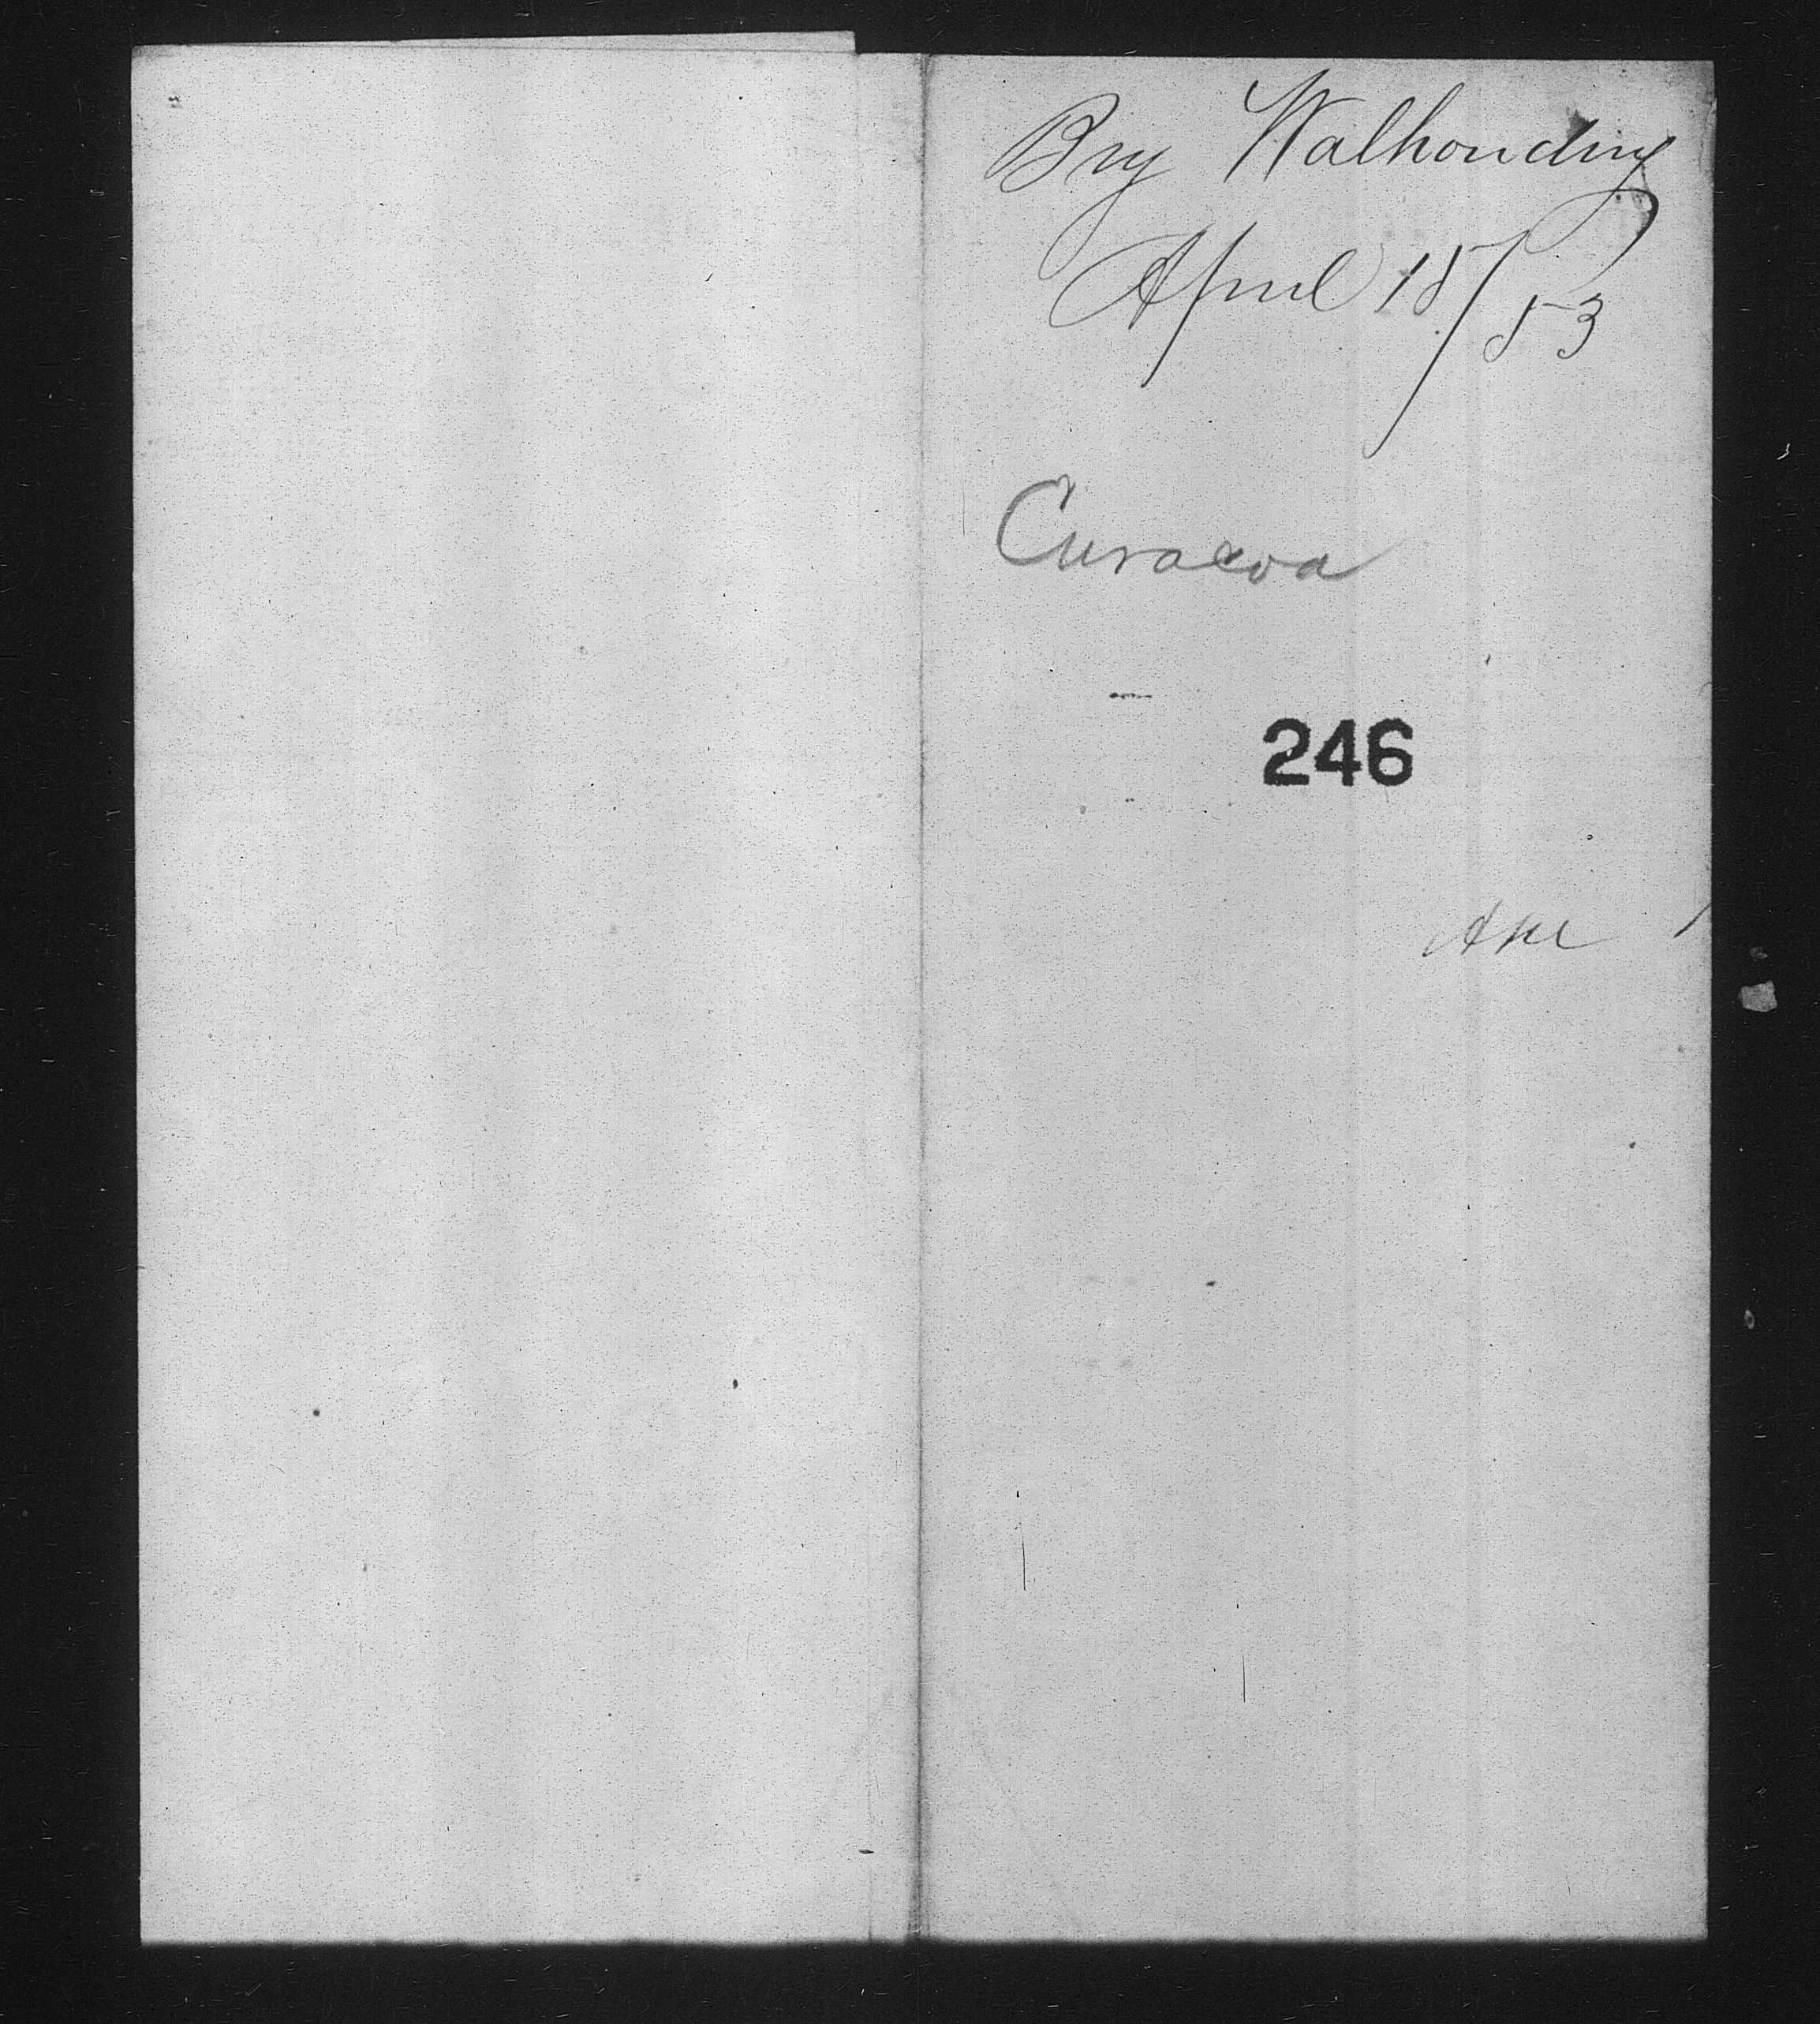 Brg Walhonding
April 18/53
Curacoa
246